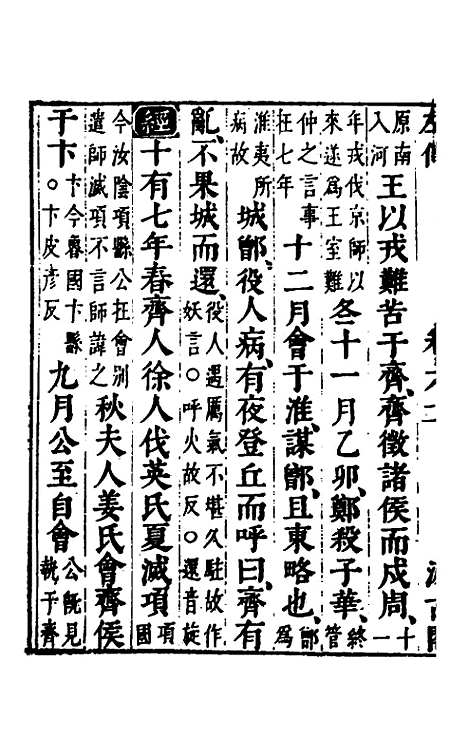 左傳 卷六 二
原南入河王以戎難告于齊、齊徵諸侯而戍周、十一
年戎伐京師以來遂爲王室難冬十一月乙卯、鄭殺子華、終管
仲之言事在七年十二月會于淮、謀鄫、且東略也、鄫爲
淮夷所病故城鄫、役人病、有夜登丘而呼曰、齊有
亂、不果城而還、役人遇厲氣不堪久駐故作妖言○呼火故反○還音旋
經十有七年春齊人徐人伐英氏夏滅項項國
今汝陰項縣公在會別遣師滅項不言師諱之秋夫人姜氏會齊侯
于卞卞今魯國卞縣○卞皮彥反九月公至自會公旣見執于齊